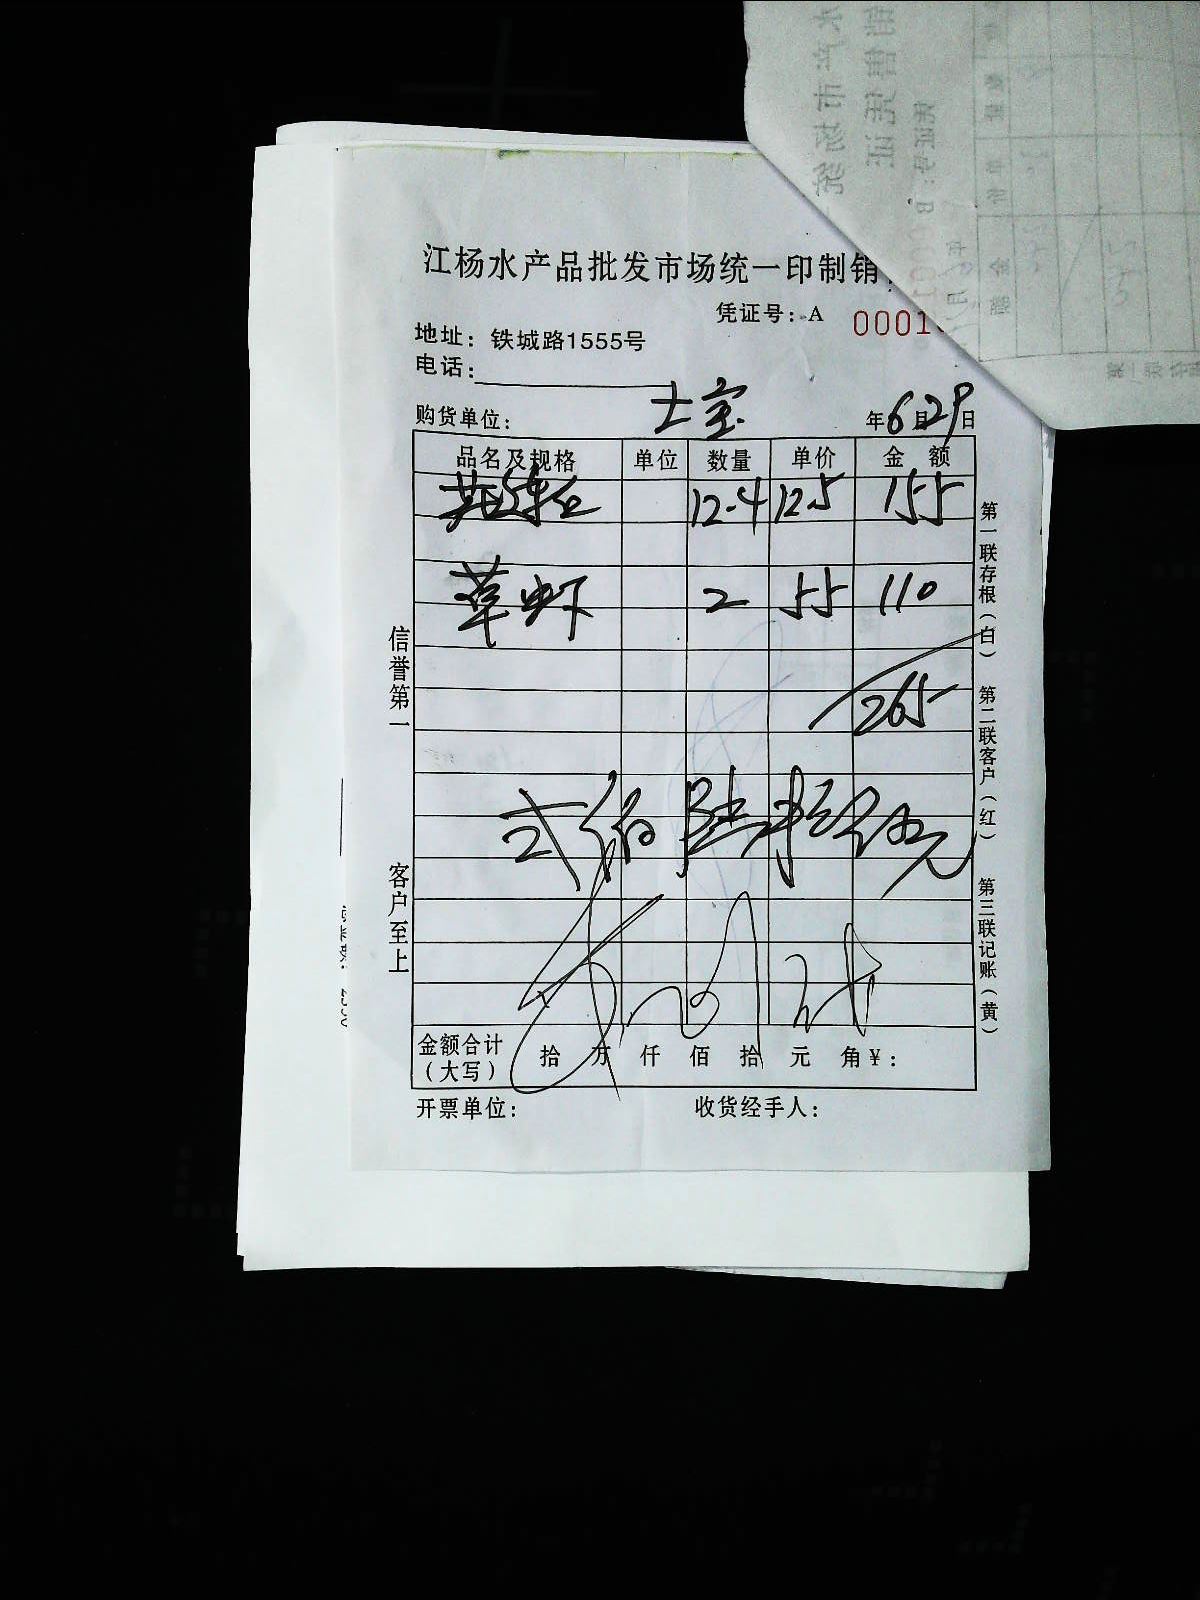 江杨水产品批发市场统一印制销
凭证号：A 0001
地址：铁城路1555号
电话：
购货单位： 士宝 年6月29日
品名及规格 单位 数量 单价 金额
12.4 12.5 155
草虾 2 55 110
265
弍佰陆拾伍元
金额合计（大写） 拾 万 仟 佰 拾 元 角 ¥：
开票单位： 收货经手人：
信誉第一 客户至上
第一联存根（白） 第二联客户（红） 第三联记账（黄）